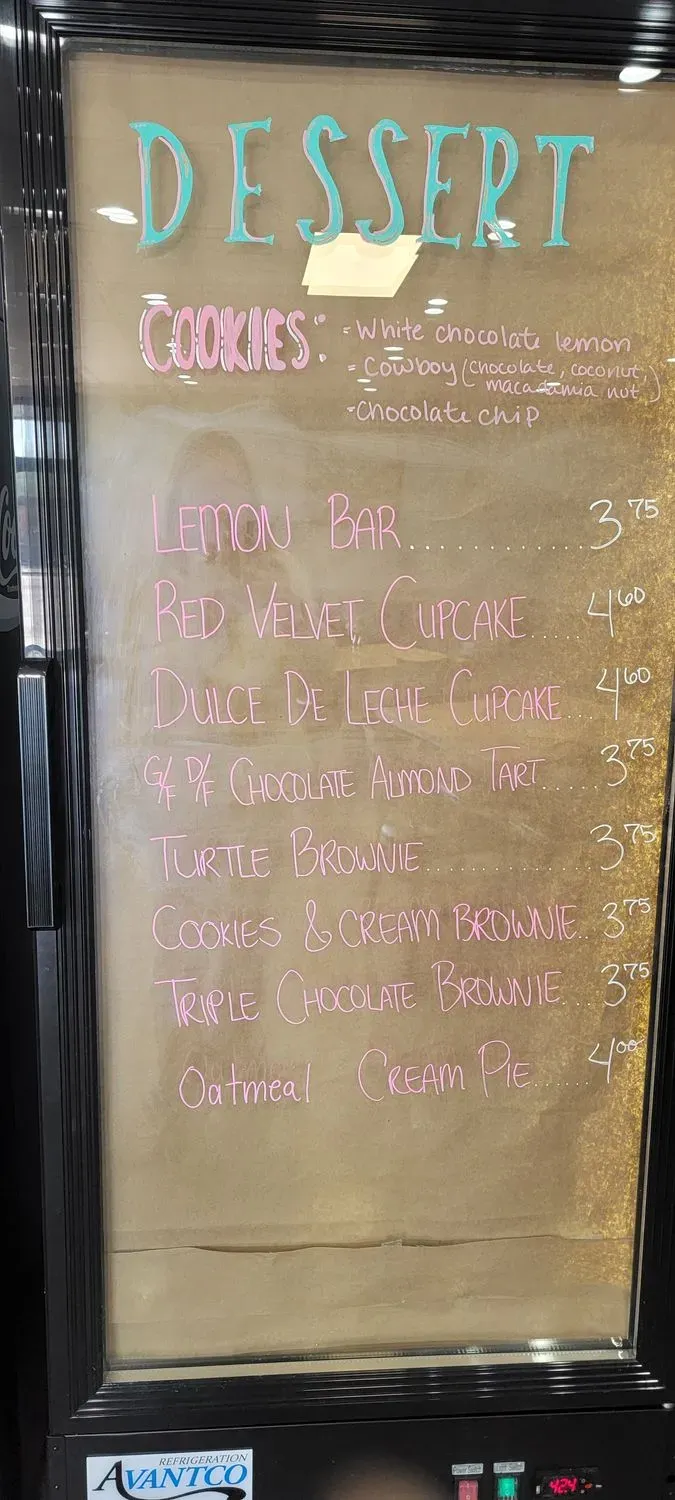 DESSERT
COOKIES: - White chocolate lemon
- Cowboy (chocolate, coconut,
macadamia nut)
- Chocolate chip
LEMON BAR............3 75
RED VELVET CUPCAKE.....4 60
DULCE DE LECHE CUPCAKE...4 60
G/F D/F CHOCOLATE ALMOND TART......3 75
TURTLE BROWNIE............3 75
COOKIES & CREAM BROWNIE..3 75
TRIPLE CHOCOLATE BROWNIE...3 75
Oatmeal CREAM PIE......4 00
REFRIGERATION
AVANTCO
Power Switch
Light Switch
42.4